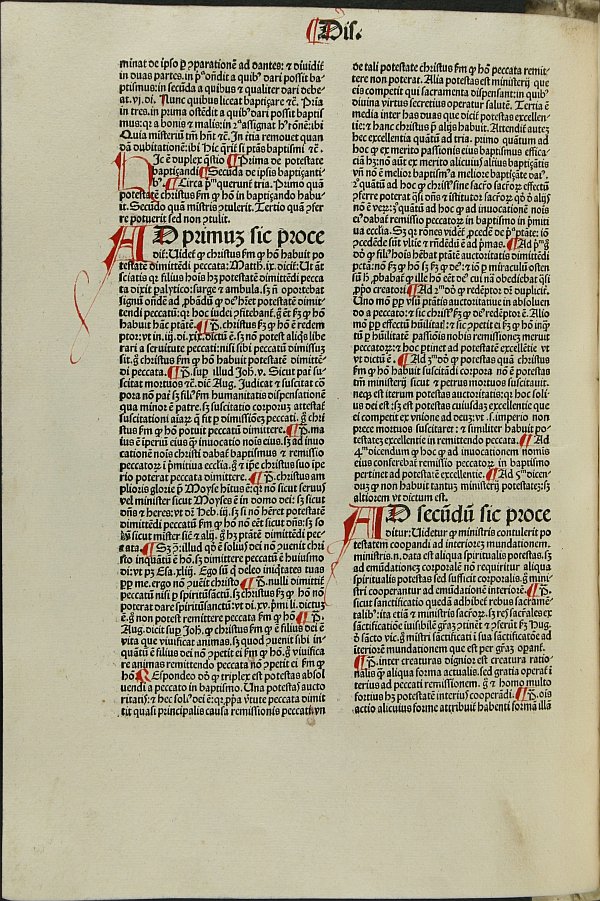 Dis.
minat de ipso p̱ ꝯparationē ad dantes: ⁊ diuidit̄
in duas partes. in p̄ᵃ on̄dit a quibꝰ dari possit ba-
ptismus: in secūda a quibus ⁊ qualiter dari debe-
at. vj. di. Nunc quibus liceat baptiçare ⁊c̄. Pria
in tres. in prima ostēdit a quibꝰ dari possit baptis
mus: qꝛ a bonis ⁊ malis: in 2ᵃ assignat hꝰ rōnē: ibi
Quia misteriū tm̄ hn̄t ⁊c̄. In t̄tia remouet quan
dā dubitationē: ibi Hic q̄rit̄ si pt̄as baptismi ⁊c̄.
Hic ē duplex q̄stio ¶ Prima de potestate
baptiçandi ¶ Secūda de ipsis baptiçanti-
bꝰ. ¶ Circa p̄ᵐ querunt̄ tria. Primo quā
potestatē christus fm̄ ꝙ hō in baptiçando habu-
it. Secūdo quā mīstris ꝯtulerit. Tertio quā ꝯfer
re potuerit sed non ꝯtulit.
AD primuz sic proce
dit̄: Uidet̄ ꝙ christus fm̄ ꝙ hō habuit po
testatē dimittēdi peccata: Matth. ix. dicit̄: Ut āt
sciatis qꝛ filius hoīs hꝫ potestatē dimittēdi pecca
ta dixit palytico: surge ⁊ ambula. sꝫ nō oportebat
signū ondē ad ꝓbādū ꝙ deꝰ hēret potestatē dimit-
tendi peccatū: qꝛ hoc iudei ꝯfitebant̄. g̊ ⁊t̄ fꝫ ꝙ hō
habuit hāc ptātē. ¶ P̄. christus fꝫ ꝙ hō ē redem
ptor: vt in. iij. di. xix. dictū ē. sꝫ nō potest aliqs libe
rari a seruitute peccati: nisi sibi peccatū dimissuꝫ
sit. g̊ christus fm̄ ꝙ hō habuit potestatē dimittē-
di peccata. ¶ P̄. sup illud Joh. v. Sicut pat̄ su-
scitat mortuos ⁊c̄. dic̄ Aug. Judicat ⁊ suscitat cō
pora nō pat̄ sꝫ filiꝰ fm̄ humanitatis dispensationē
qua minor ē patre. sꝫ suscitatio corporuꝫ attestat̄
suscitationi aīarꝫ q̄ fit p̱ dimissiōeꝫ peccati. g̊ chri
stus fm̄ ꝙ hō potuit peccatū dimittere. ¶ P̄. ma
ius ē ip̄eriū eius ꝙ̄ inuocatio nois eius. sꝫ ad inuo
cationē nois christi dabat̄ baptismus ⁊ remissio
peccatoꝝ ī p̄mitiua ecclia. g̊ ⁊ ip̄e christus suo ip̄e
rio poterat peccata dimittere. ¶ P̄. Christus am
plioris glorie p̄ Moyse hītus ē: qꝛ nō sicut seruus
vel minister sicut Moyses ē in domo dei: sꝫ sicut
dn̄s ⁊ heres: vt dī Heb. iij. sꝫ si nō hēret potestatē
dimittēdi peccatū fm̄ ꝙ hō nō eēt sicut dn̄s: sꝫ so
lū sicut mīster sic̄ ⁊ alij. g̊ hꝫ ptātē dimittēdi pec-
cata. ¶ Sꝫ ꝯ: illud qd̓ ē soliusꝰ dei nō ꝯuenit chri
sto inquātū ē hō. sꝫ dimittere peccatū ē huiusmo
di: vt pꝫ Esa. xliij. Ego sū q̇ deleo iniq̇tates tuas
ꝓp me. ergo nō ꝯueīt christo ¶ P̄. nulli dimittit̄
peccatū nisi p̱ spiritūsanctū. sꝫ christus fm̄ ꝙ hō nō
poterat dare spiritūsanctū: vt di. xv. p̄mi li. dictuꝫ
ē. g̊ non potest remittere peccata fm̄ ꝙ hō ¶ P̄.
Aug. dicit sup Joh. ꝙ christus fm̄ ꝙ ē filius dei ē
vita que viuificat animas. sꝫ quod ꝯuenit sibi in-
quātū ē filius dei nō ꝯpetit ei fm̄ ꝙ hō. g̊ viuifica
re animas remittendo peccata nō ꝯpetit ei fm̄ ꝙ
hō ¶ Respondeo dō̄ ꝙ triplex est potestas absol
uendi a peccato in baptismo. Una potestas aucto
ritatis: ⁊ hec soliꝰ dei ē: qꝛ ꝓp̄a ṽtute peccata dimit
tit quasi principalis causa remissionis peccati. vn̄
de tali potestate christus fm̄ ꝙ hō peccata remit-
tere non poterat. Alia potestas est ministerij que
eis competit qui sacramenta dispensant: in quibꝰ
diuina virtus secretius operatur salutē. Tertia ē
media inter has duas que dicit̄ potestas excellen-
tie: ⁊ hanc christus p̄ alijs habuit. Attendit̄ autez
hec excellentia quantū ad tria. primo quātum ad
hoc ꝙ ex merito passionis eius baptismus effica-
ciā hꝫ: nō aūt ex merito alicuius alriꝰ baptiçātis
vn̄ nō ē melior baptism̃ a meliore baptiçāte datꝰ.
2ᵒ quātū ad hoc ꝙ christꝰ sine sacrō sacroꝝ effectū
ꝯferre poterat q̇si dn̄s ⁊ īstitutor sacroꝝ. qd̓ ō alijs
nō ē verꝫ: 3ᵒ quātū ad hoc ꝙ ad inuocationē nois
eiꝰ dabat̄ remissio peccatoꝝ in baptismo in p̄miti
ua ecclia. Sꝫ qꝛ rōnes vident̄ ꝓcedē de p̄ᵃ ptāte: iō
ꝯcedēde sūt vltie ⁊ rn̄dēdū ē ad p̄mas. ¶ Ad p̄ᵐ g̊
dō̄ ꝙ filiꝰ hoīs hēbat ptātē auctoritatis dimittēdi
pctā: nō fꝫ ꝙ hō sꝫ fꝫ ꝙ deꝰ: ⁊ iō p̱ miraculū osten
sū h̊ ꝓbabat̄ ꝙ ille hō eēt deꝰ cui nā obediebat q̇si
ꝓpo creatori ¶ Ad 2ᵐ dō̄ ꝙ redēptor dī duplicit̄.
Uno mō ꝓp̄ vsū ptātis auctoritatiue in absoluen
do a peccato: ⁊ sic christꝰ fꝫ ꝙ deꝰ redēptor ē. Alio
mō ꝓp̄ effectū hūilitatꝭ: ⁊ sic ꝯpetit ei fꝫ ꝙ hō inq̄
tū p̱ hūilitatē passionis nobis remissioneꝫ meruit
peccatoꝝ: ⁊ hoc ptinet ad potestatē excellētie vt
vt dictū ē. ¶ Ad 3ᵐ dō̄ ꝙ potestas quā christus
fm̄ ꝙ hō habuit suscitādi corpora nō ē potestas
tm̄ ministerij sicut ⁊ petrus mortuos suscitauit.
neqꝫ est iterum potestas auctoritatis: qꝛ hoc soli-
us dei est: sꝫ est potestas cuiusdaꝫ excellentie que
ei competit ex vnione ad deuꝫ: vt. s. imperio non
prece mortuos suscitaret: ⁊ similiter habuit po-
testateꝫ excellentie in remittendo peccata. ¶ Ad
4ᵐ dicendum ꝙ hoc ꝙ ad inuocationem nomis
eius conferebat̄ remissio peccatoꝝ in baptismo
pertinet ad potestatē excellentie. ¶ Ad 5ᵐ dicen-
duꝫ ꝙ non habuit tantuꝫ ministerij potestateꝫ: sꝫ
altiorem vt dictum est.
AD secūdū sic proce
ditur: Uidetur ꝙ ministris contulerit po
testatem coopandi ad interiorem mundationem.
ministris. n. data est aliqua spiritualis potestas. sꝫ
ad emūdationeꝫ corporalē nō requiritur aliqua
spiritualis potestas sed sufficit corporalis. g̊ mini
stri cooperantur ad emūdationē interiorē. ¶ P̄.
sicut sanctificatio quedā adhibet̄ rebus sacramē-
talibꝰ: ita etiā ⁊ ministris sacroꝝ. sꝫ res sacrales ex
sāctificatiōe īuisibilē gr̄aꝫ ꝯtinēt ⁊ ꝯferūt fꝫ Hug.
ō sācto vic. g̊ mistri sāctificati ī sua sāctificatōe ad
īteriorē mundationem que est per graꝫ opant̄.
¶ P̄. inter creaturas dignior est creatura ratio-
nalis ꝙ̄ aliqua forma actualis. sed gratia opat̄ ī
terius ad peccati remissionem. g̊ ⁊ homo multo
fortius hꝫ potestatē interius cooperādi. ¶ P̄. ois
actio alicuius forme attribuit̄ habenti formā illā